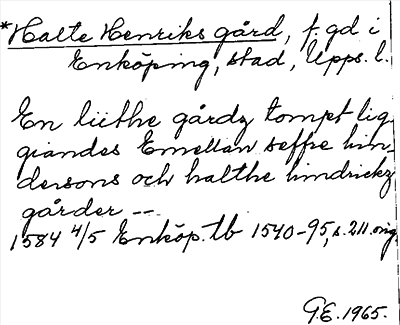 *Halte Henriks gård, f. gd. i
Enköping, stad, Upps. l.
En liithe gårdz tompt lig
giandes Emellan seffre hin-
dersons och halthe hindrickz
gårder --
1584 4/5 Enköp. tb 1540-95, s. 211. orig.
G.E. 1965.